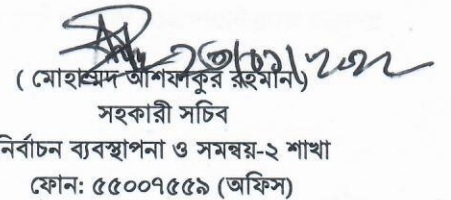 ২৩/০১/২০২২
( মোহাম্মদ আশফাকুর রহমান )
সহকারী সচিব
নির্বাচন ব্যবস্থাপনা ও সমন্বয়-২ শাখা
ফোন: ৫৫০০৭৫৫৯ (অফিস)